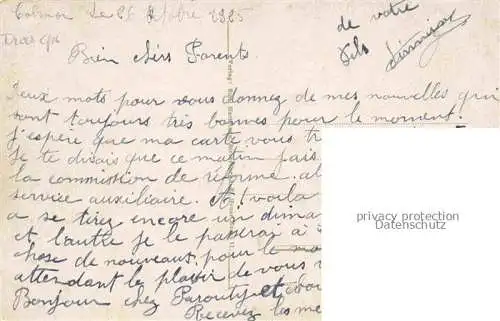 Colmar Le 26 Septbre 1925
de votre
Fils
Bien chers Parents
Deux mots pour vous donnez de mes nouvelles qui
sont toujours très bonnes pour le moment.
J'espère que ma carte vous
Je te dirais que ce matin
la commission de réforme. al
service auxiliaire. Ah! voila
a se tirez encore un dima
et l'autre je le passerai à
chose de nouveaux pour le mo
attendant le plaisir de vous
Bonjour chez et
Recevez les me
privacy protection
Datenschutz